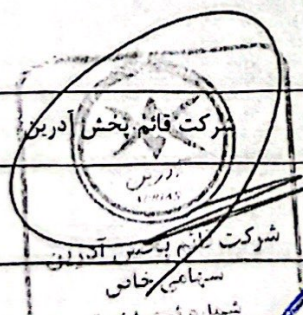 شرکت قائم پخش آدرین
آدرین
شرکت قائم پخش آدرین
سهامی خاص
شماره